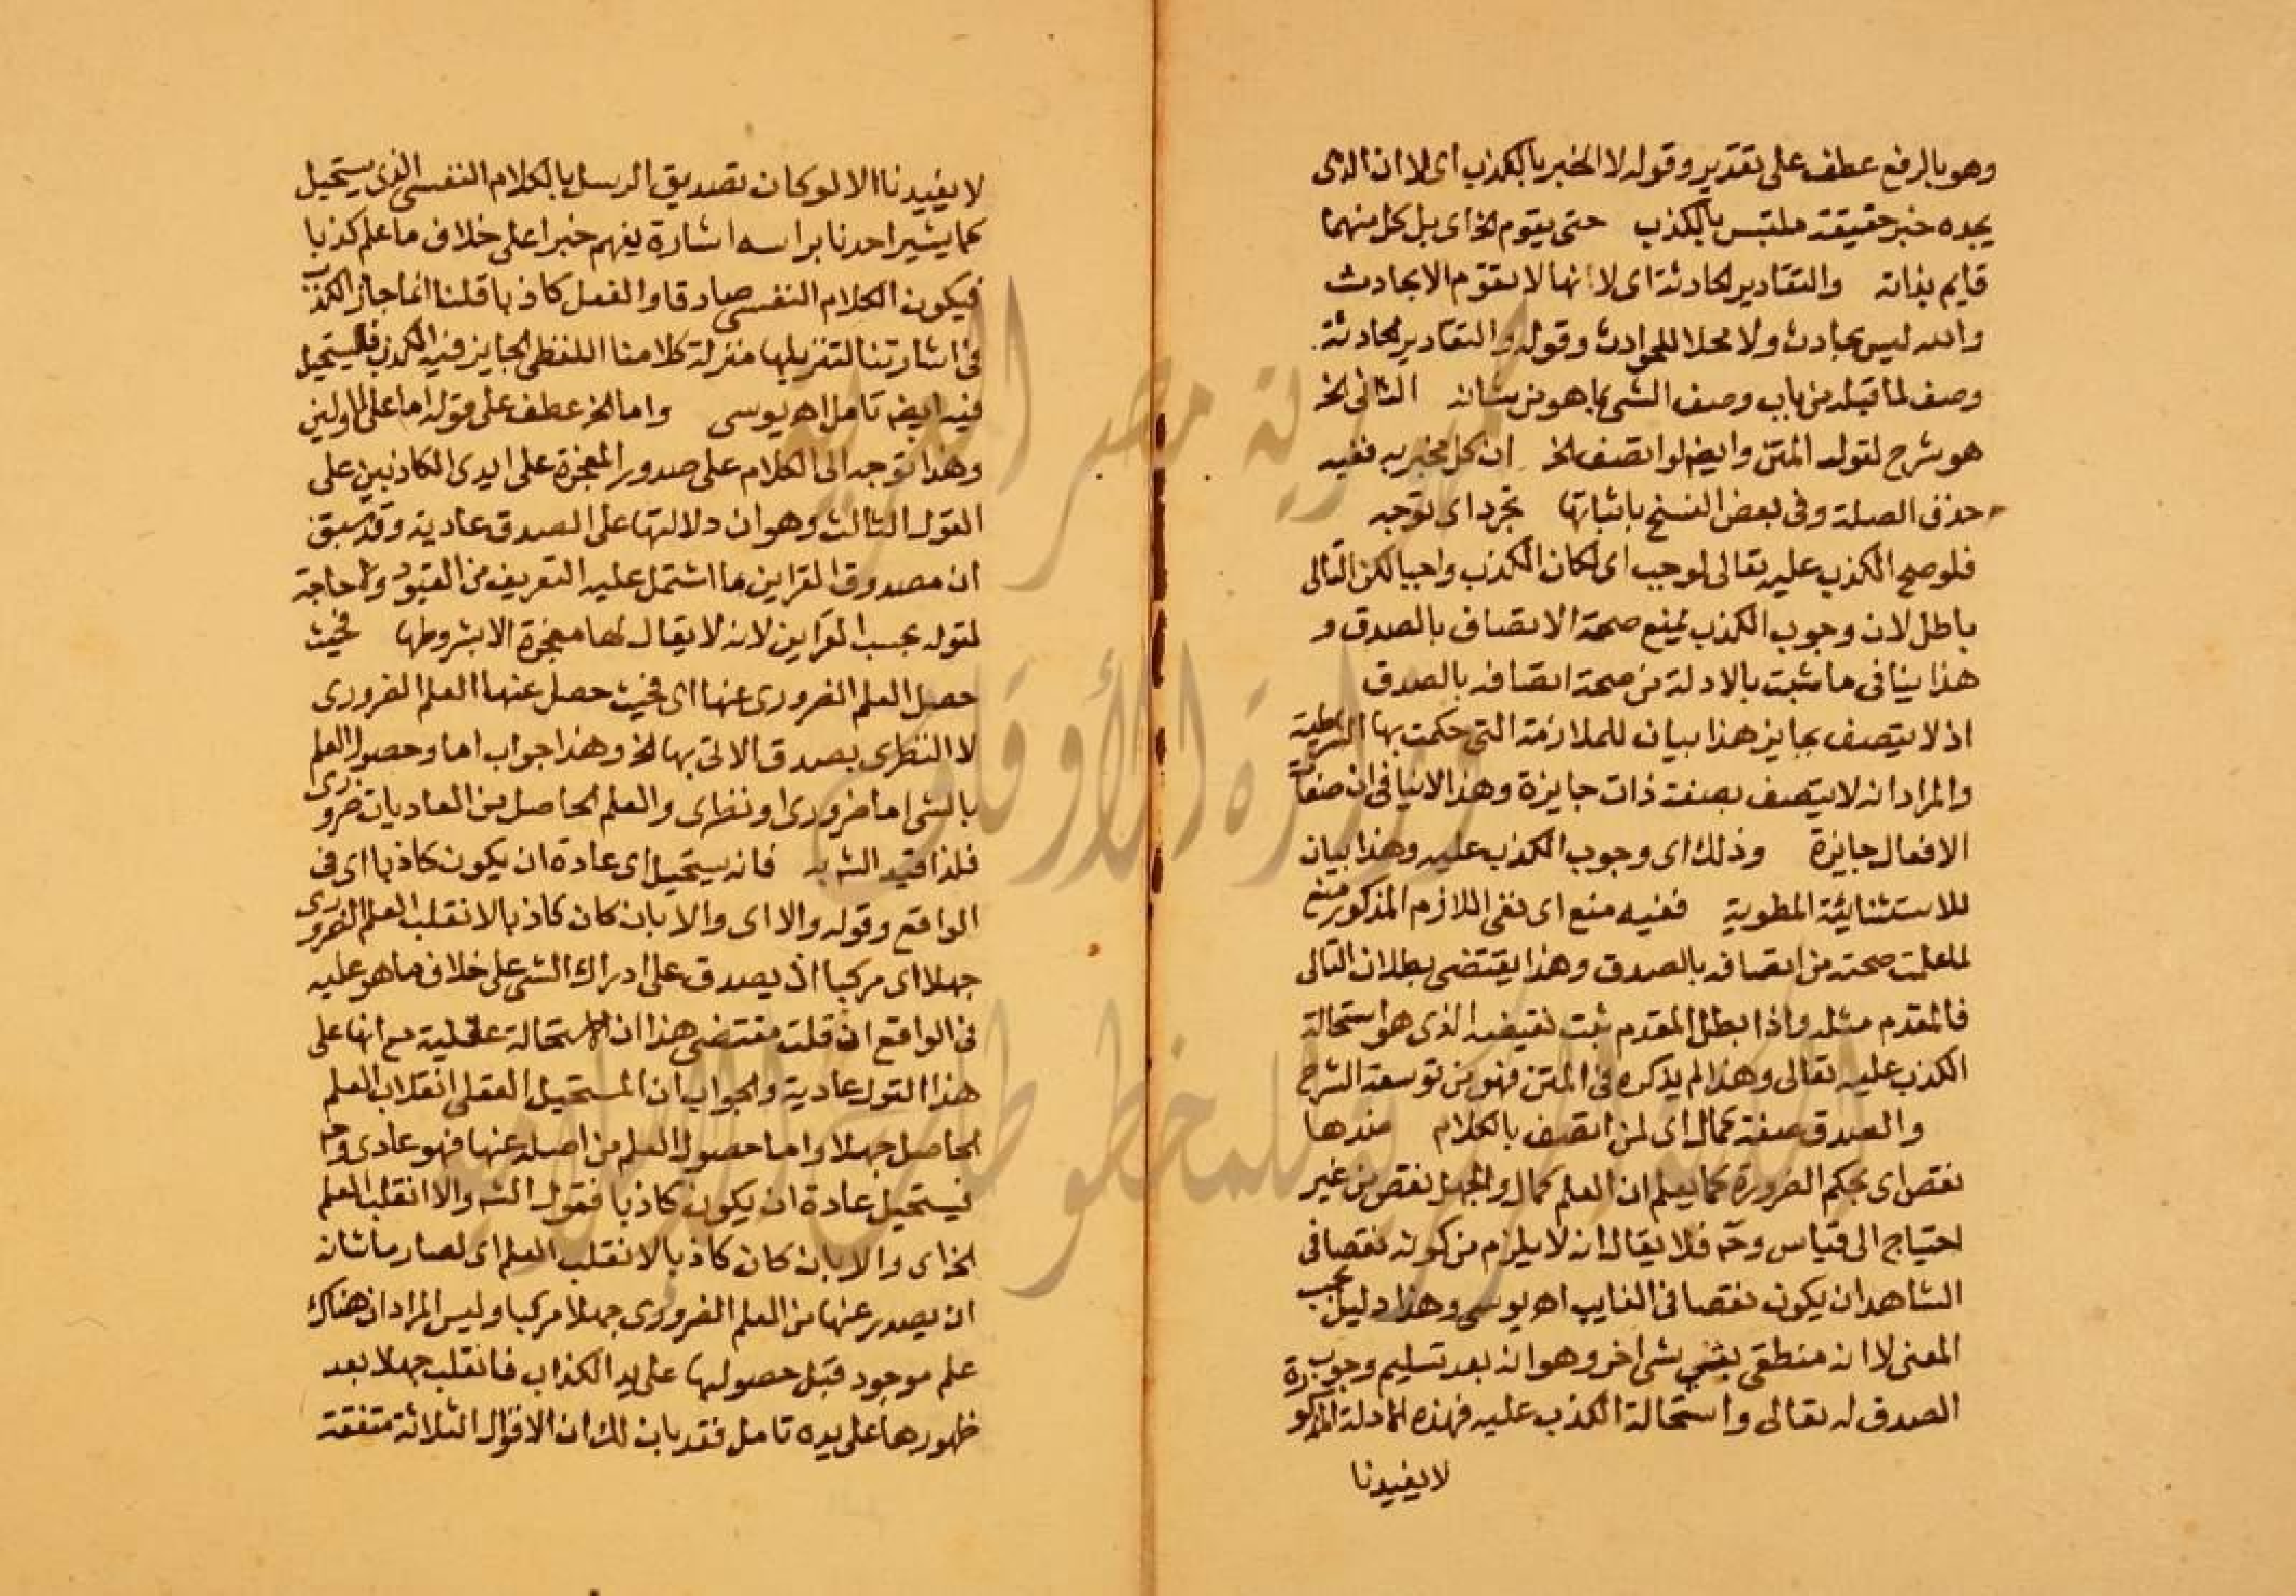 وهو بالرفع عطف على تقدير وقوله لا الخبر بالكذب اى لا ان الذى
يجده خبر حقيقة ملتبس بالكذب حتى يقوم الخ اى بل كل منهما
قايم بذاته والتقادير الحادثة اى لا انها لا تقوم الا بحادث
والله ليس بحادث ولا محلا للحوادث وقوله والتقادير الحادثة
وصف لما قبله من باب وصف الشى بما هو من شانه الثانى الخ
هو شرح لقوله المتن وايضم لو اتصف الخ ان كل مخبر به ففيه
حذف الصلة وفى بعض النسخ باثباتها تجرد اى توجه
فلو صح الكذب عليه تعالى لوجب اى لكان الكذب واجبا لكن التالى
باطل لان وجوب الكذب يمنع صحة الاتصاف بالصدق و
هذا ينافى ما ثبت بالادلة من صحة اتصافه بالصدق
اذ لا يتصف بجايز هذا بيان للملازمة التى حكمت بها الشرطية
والمراد انه لا يتصف بصفة ذات جايزة وهذا لا ينافى ان صفات
الافعال جايزة وذلك اى وجوب الكذب عليه وهذا بيان
للاستثنائية المطوية ففيه منع اى نفى اللازم المذكور منع
لما علمت صحته من اتصافه بالصدق وهذا يقتضى بطلان التالى
فالمقدم مثله واذا بطل المقدم ثبت نقيضه الذى هو استحالة
الكذب عليه تعالى وهذا لم يذكره فى المتن فهو من توسعة الشرح
والصدق صفة كمال اى لمن اتصف بالكلام ضدها
نقص اى بحكم الضرورة كما يعلم ان العلم كمال والجهل نقص من غير
احتياج الى قياس وح فلا يقال انه لا يلزم من كونه نقصا فى
الشاهد ان يكون نقصا فى الغايب اهـ يوسى وهذا دليل بحسب
المعنى لا انه منطقى بشى اخر وهو انه بعد تسليم وجوب
الصدق له تعالى واستحالة الكذب عليه فهذه الادلة المذكورة
لا يفيدنا
لا يفيدنا الا لو كان تصديق الرسل بالكلام النفسى الذى يستحيل
كما يشير احدنا براسه اشارة يفهم خبرا على خلاف ما علم كذبا
فيكون الكلام النفسى صادقا والفعل كاذبا قلنا انما جاز الكذب
فى اشارتنا لتنزيلها منزلة كلامنا اللفظى الجايز فيه الكذب فيستحيل
فيه ايضم تامل اهـ يوسى واما الخ عطف على قوله اما على الاولين
وهذا توجه الى الكلام على صدور المعجزة على ايدى الكاذبين على
القول الثالث وهو ان دلالتها على الصدق عادية وقد سبق
ان مصدوق القراين ما اشتمل عليه التعريف من القيود ولا حاجة
لقوله بحسب القراين لانه لا يقال لها معجزة الا بشروطها فحيث
حصل العلم الضرورى عنها اى فحيث حصل عنها العلم الضرورى
لا النظرى بصدق الاتى بها الخ وهذا جواب اما وحصول العلم
بالشى اما ضرورى او نظرى والعلم الحاصل من العاديات ضرورى
فلذا قيد الشه به فانه يستحيل اى عادة ان يكون كاذبا اى فى
الواقع وقوله والا اى والا بان كان كاذبا لانقلب العلم الضرورى
جهلا اى مركبا اذ يصدق على ادراك الشى على خلاف ما هو عليه
فى الواقع ان قلت مقتضى هذا ان الاستحالة عقلية مع انها على
هذا القول عادية والجواب ان المستحيل العقلى انقلاب العلم
الحاصل جهلا واما حصول العلم من اصله عنها فهو عادى وح
فيستحيل عادة ان يكون كاذبا فقول الشه والا انقلب العلم
الخ اى والا بان كان كاذبا لانقلب العلم اى لصار ما شانه
ان يصدر عنها من العلم الضرورى جهلا مركبا وليس المراد ان هناك
علم موجود قبل حصولها على يد الكذاب فانقلب جهلا بعد
ظهورها على يده تامل فقد بان لك ان الاقوال الثلاثة متفقة